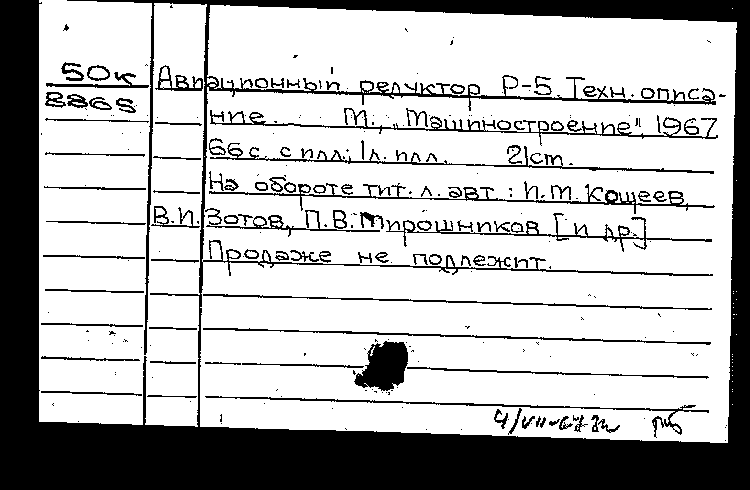 50к Авиационный редуктор Р-5. Техн. описа-
2865 ние. М., „Машиностроение", 1967
66 с. с илл.; 1 л. илл. 21 cm.
На обороте тит. л. авт.: И.М. Кощеев,
В.И. Зотов, П.В. Мирошников [и др.]
Продаже не подлежит.
4/VII-67